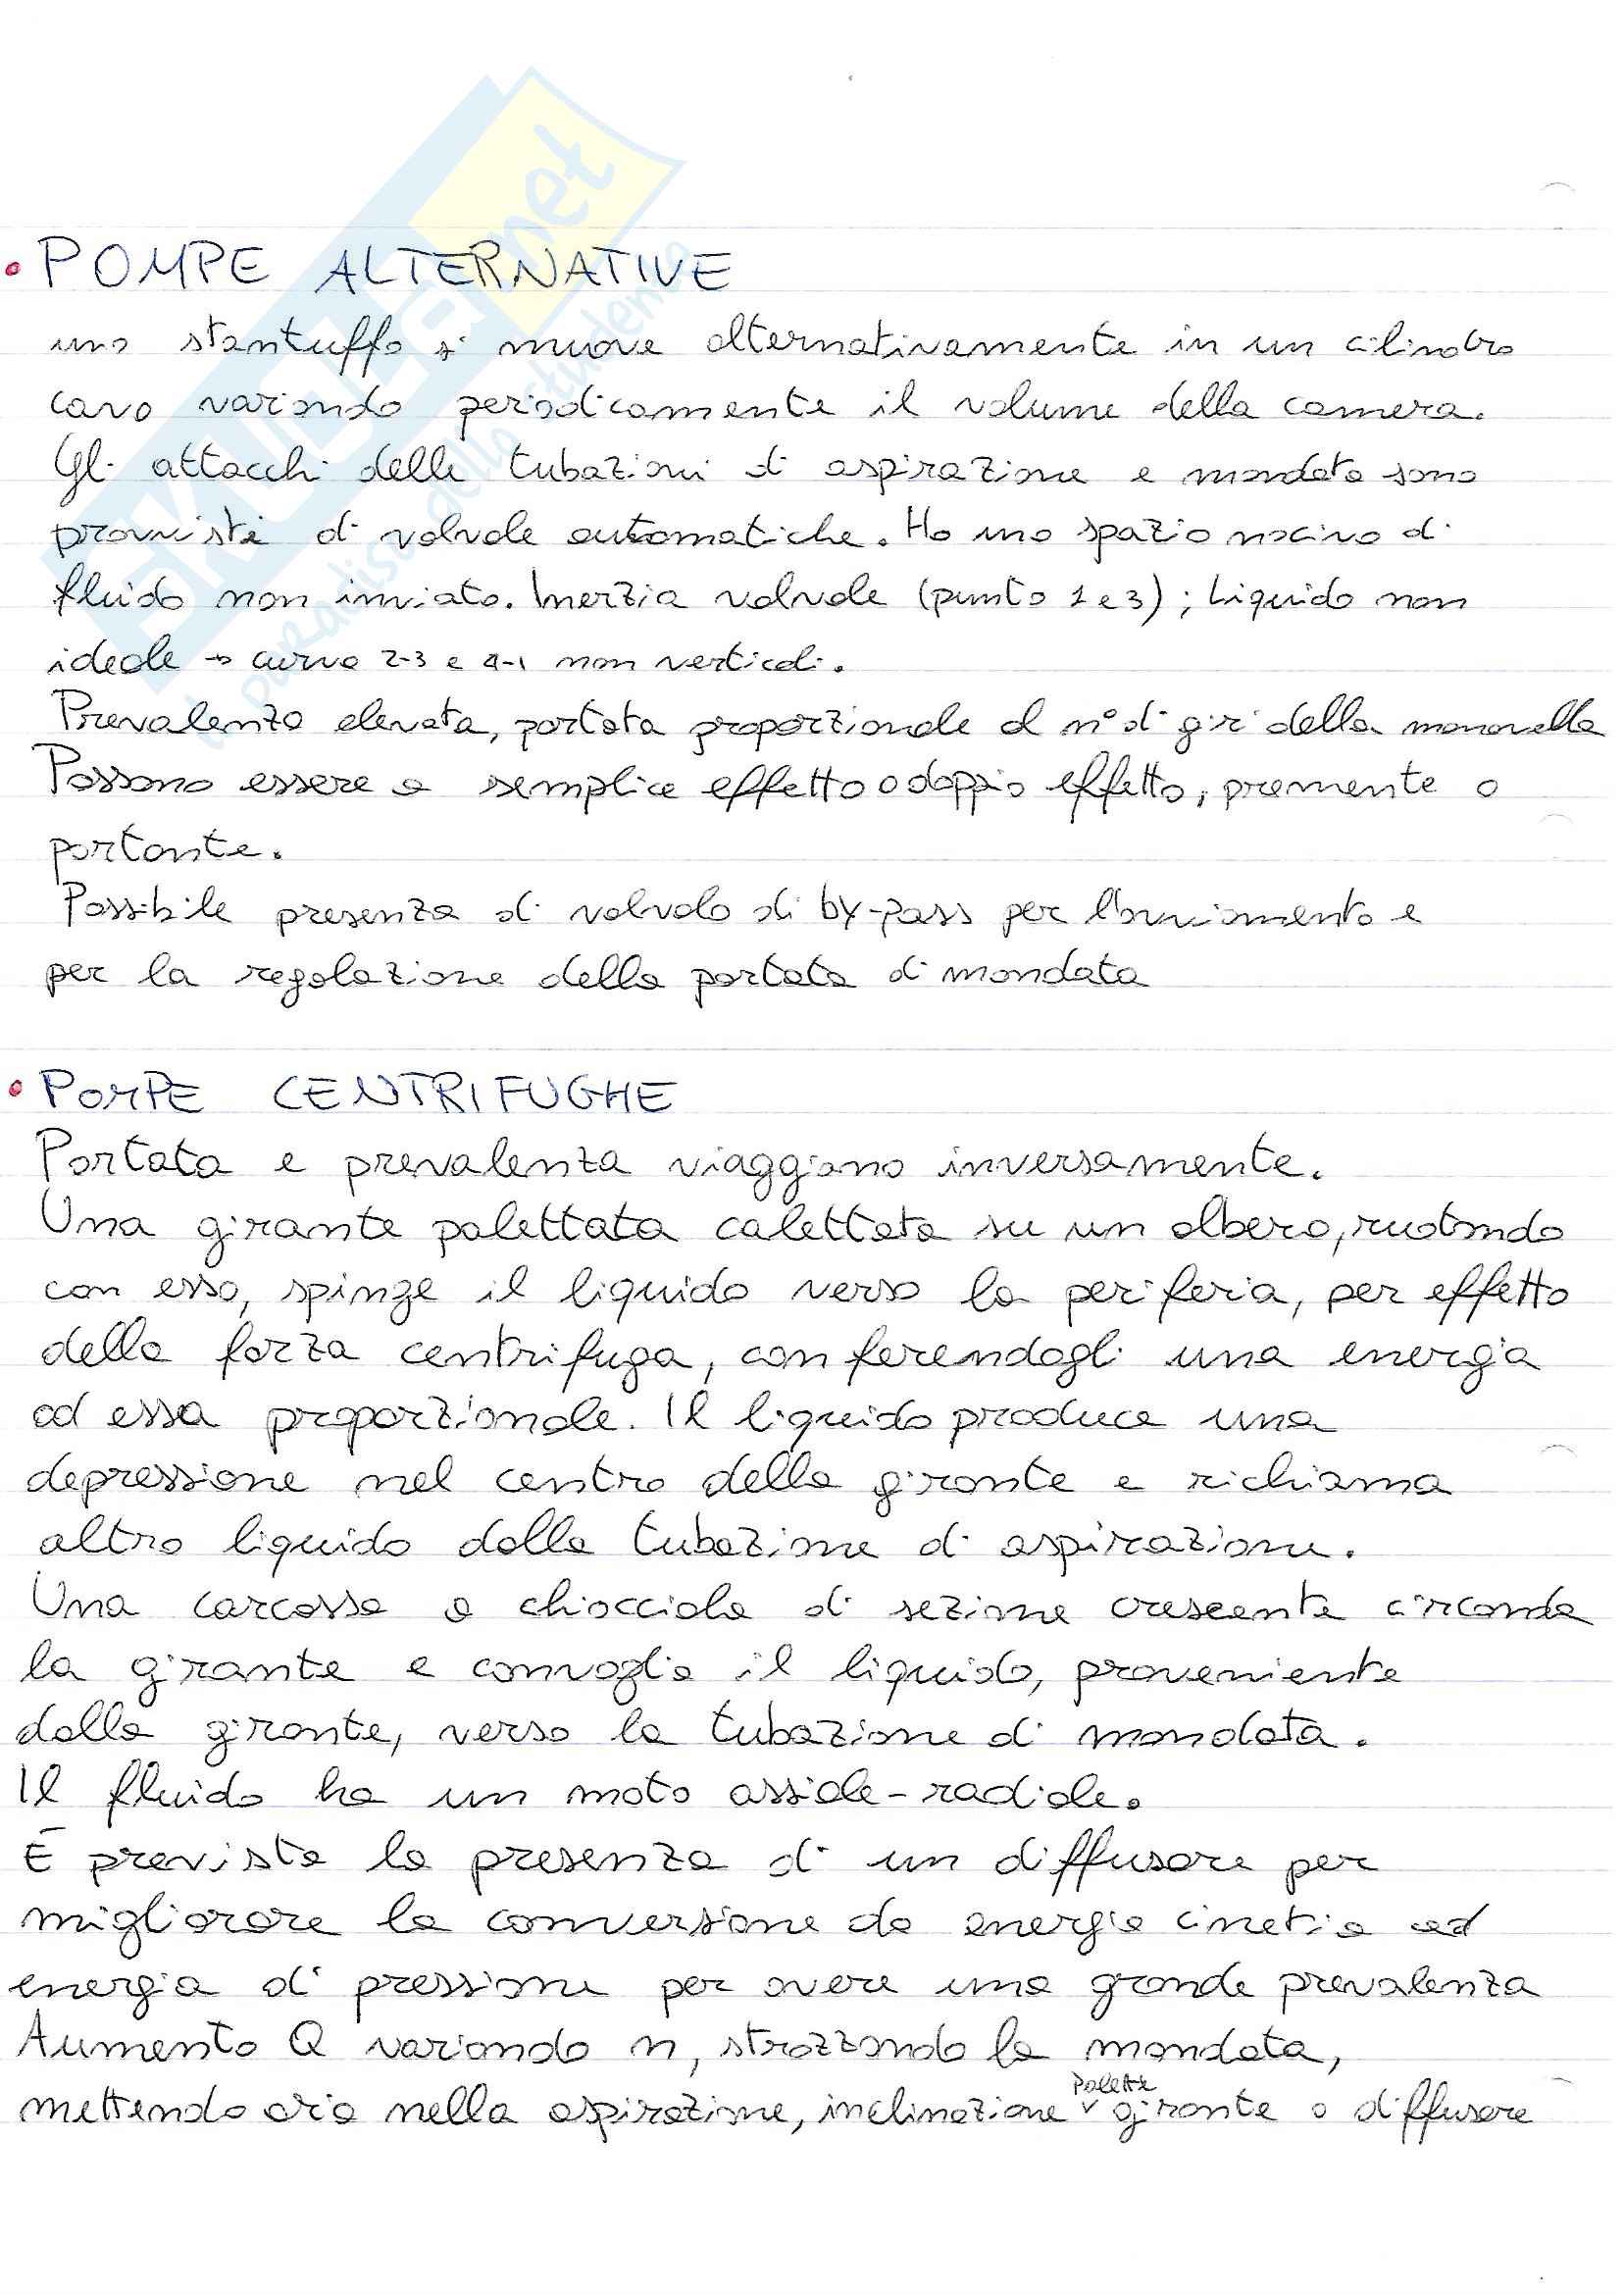 • POMPE ALTERNATIVE
uno stantuffo si muove alternativamente in un cilindro
cavo variando periodicamente il volume della camera.
Gli attacchi delle tubazioni di aspirazione e mandata sono
provviste di valvole automatiche. Ho uno spazio nocivo di
fluido non inviato. Inerzia valvole (punto 1 e 3); Liquido non
ideale → curve 2-3 e 4-1 non verticali.
Prevalenza elevata, portata proporzionale al n° di giri della manovella
Possono essere a semplice effetto o doppio effetto, premente o
portante.
Possibile presenza di valvola di by-pass per l'avviamento e
per la regolazione della portata di mandata
• POMPE CENTRIFUGHE
Portata e prevalenza viaggiano inversamente.
Una girante palettata calettata su un albero, ruotando
con esso, spinge il liquido verso la periferia, per effetto
della forza centrifuga, conferendogli una energia
ad essa proporzionale. Il liquido produce una
depressione nel centro della girante e richiama
altro liquido dalla tubazione di aspirazione.
Una carcassa a chiocciola di sezione crescente circonda
la girante e convoglia il liquido, proveniente
dalla girante, verso la tubazione di mandata.
Il fluido ha un moto assiale-radiale.
È prevista la presenza di un diffusore per
migliorare la conversione da energia cinetia ad
energia di pressione per avere una grande prevalenza
Aumento Q variando n, strozzando la mandata,
mettendo aria nella aspirazione, inclinazione palette girante o diffusore